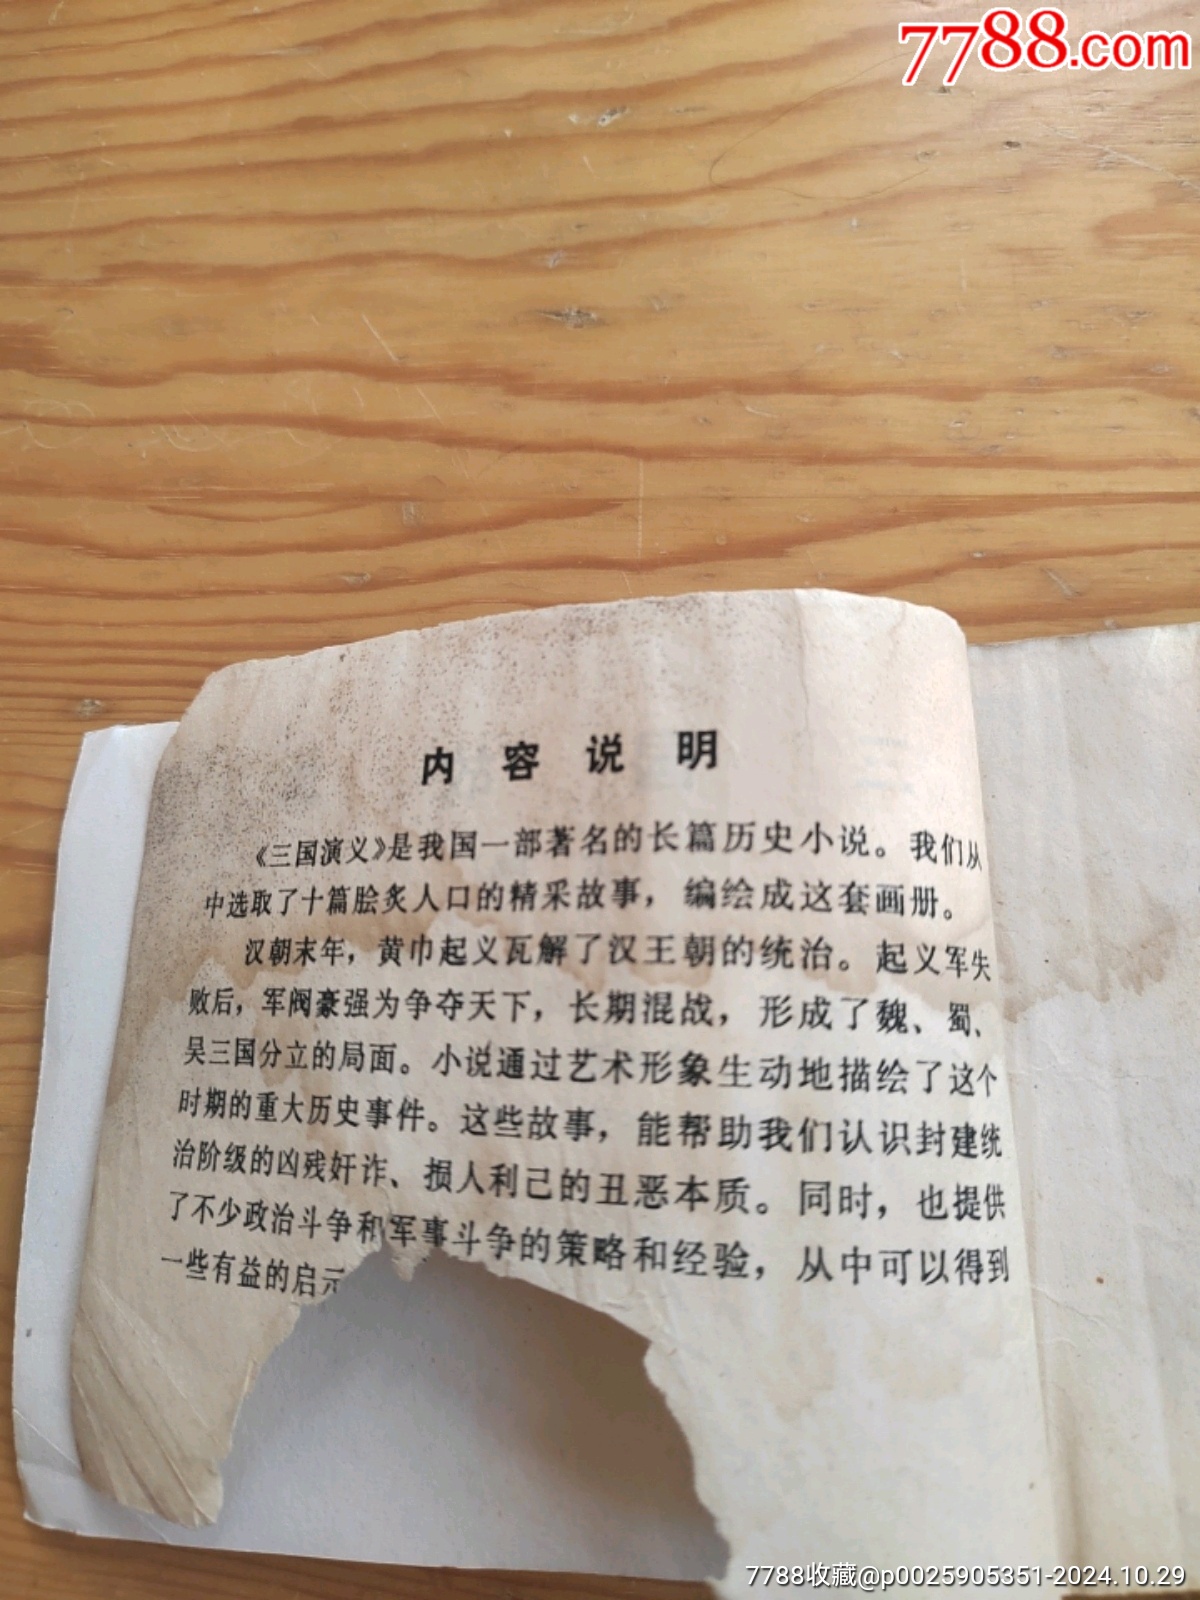 7788.com
内容说明
《三国演义》是我国一部著名的长篇历史小说。我们从
中选取了十篇脍炙人口的精采故事，编绘成这套画册。
汉朝末年，黄巾起义瓦解了汉王朝的统治。起义军失
败后，军阀豪强为争夺天下，长期混战，形成了魏、蜀、
吴三国分立的局面。小说通过艺术形象生动地描绘了这个
时期的重大历史事件。这些故事，能帮助我们认识封建统
治阶级的凶残奸诈、损人利己的丑恶本质。同时，也提供
了不少政治斗争和军事斗争的策略和经验，从中可以得到
一些有益的启示
7788收藏@p0025905351-2024.10.29